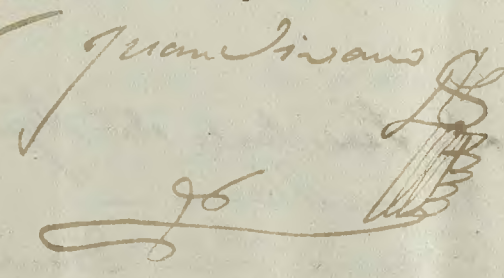 Juan Vivano